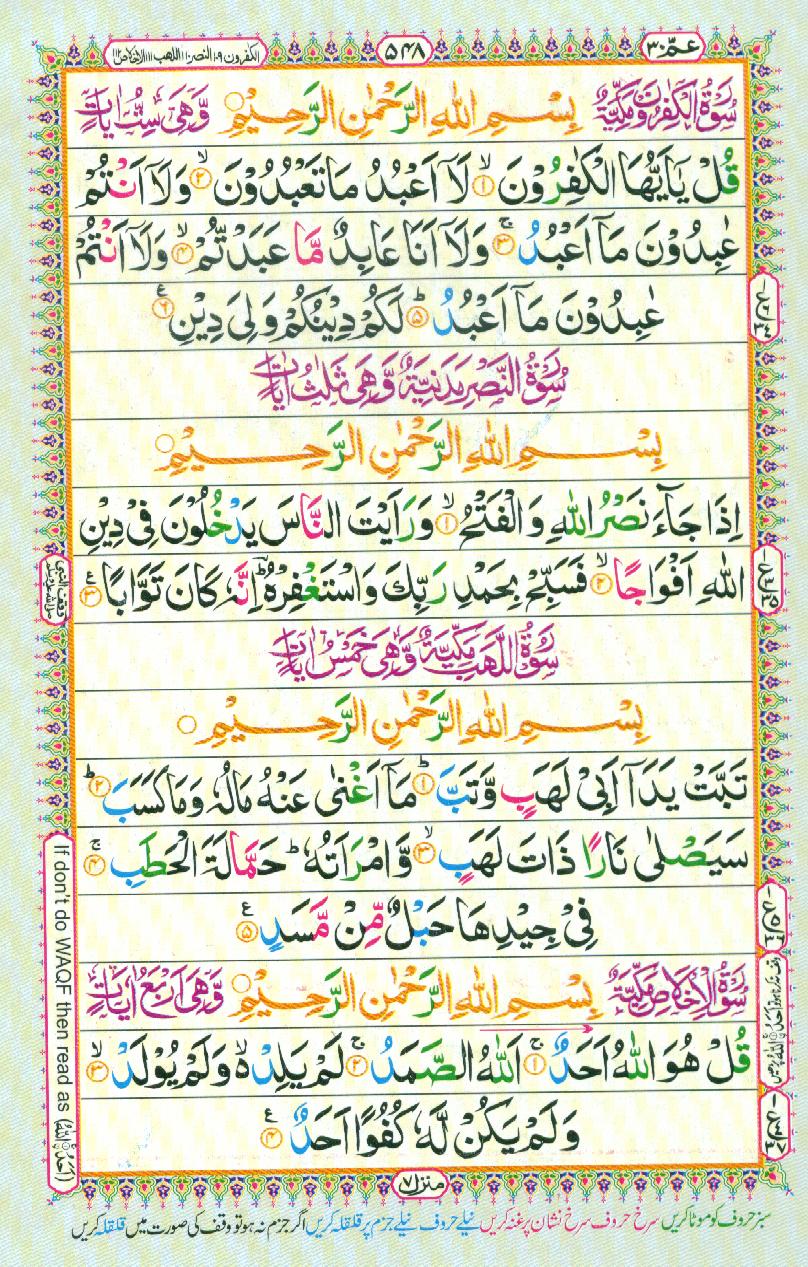 عمّ ٣٠
٥٤٨
الكٰفرون ١٠٩ النصر ١١٠ اللهب ١١١ الاخلاص ١١٢
سُوْرَةُ الْكٰفِرُوْنَ مَكِّيَّةٌ بِسْمِ اللهِ الرَّحْمٰنِ الرَّحِيْمِ وَّهِیَ سِتُّ اٰيَاتٍ
قُلْ يٰۤاَيُّهَا الْكٰفِرُوْنَ ۙ﴿۱﴾ لَاۤ اَعْبُدُ مَا تَعْبُدُوْنَ ۙ﴿۲﴾ وَلَاۤ اَنْتُمْ
عٰبِدُوْنَ مَاۤ اَعْبُدُ ۚ﴿۳﴾ وَلَاۤ اَنَا عَابِدٌ مَّا عَبَدْتُّمْ ۙ﴿۴﴾ وَلَاۤ اَنْتُمْ
عٰبِدُوْنَ مَاۤ اَعْبُدُ ؕ﴿۵﴾ لَكُمْ دِيْنُكُمْ وَلِیَ دِيْنِ ﴿۶﴾ ع
سُوْرَةُ النَّصْرِ مَدَنِيَّةٌ وَّهِیَ ثَلٰثُ اٰيَاتٍ
بِسْمِ اللهِ الرَّحْمٰنِ الرَّحِيْمِ
اِذَا جَآءَ نَصْرُ اللهِ وَالْفَتْحُ ۙ﴿۱﴾ وَرَاَيْتَ النَّاسَ يَدْخُلُوْنَ فِیْ دِيْنِ
اللهِ اَفْوَاجًا ۙ﴿۲﴾ فَسَبِّحْ بِحَمْدِ رَبِّكَ وَاسْتَغْفِرْهُ ؕ اِنَّهٗ كَانَ تَوَّابًا ﴿۳﴾ ع
سُوْرَةُ اللَّهَبِ مَكِّيَّةٌ وَّهِیَ خَمْسُ اٰيَاتٍ
بِسْمِ اللهِ الرَّحْمٰنِ الرَّحِيْمِ
تَبَّتْ يَدَاۤ اَبِیْ لَهَبٍ وَّتَبَّ ؕ﴿۱﴾ مَاۤ اَغْنٰی عَنْهُ مَالُهٗ وَمَا كَسَبَ ؕ﴿۲﴾
سَيَصْلٰی نَارًا ذَاتَ لَهَبٍ ۙ﴿۳﴾ وَّامْرَاَتُهٗ ؕ حَمَّالَةَ الْحَطَبِ ۚ﴿۴﴾
فِیْ جِيْدِهَا حَبْلٌ مِّنْ مَّسَدٍ ﴿۵﴾ ع
سُوْرَةُ الْاِخْلَاصِ مَكِّيَّةٌ بِسْمِ اللهِ الرَّحْمٰنِ الرَّحِيْمِ وَّهِیَ اَرْبَعُ اٰيَاتٍ
قُلْ هُوَ اللهُ اَحَدٌ ۚ﴿۱﴾ اَللهُ الصَّمَدُ ۚ﴿۲﴾ لَمْ يَلِدْ ۙ۬ وَلَمْ يُوْلَدْ ۙ﴿۳﴾
وَلَمْ يَكُنْ لَّهٗ كُفُوًا اَحَدٌ ﴿۴﴾ ع
If don't do WAQF then read as (اَحَدُنِ اللهُ)
منزل ٧
سبز حروف کو موٹا کریں سرخ حروف سرخ نشان پر غنہ کریں نیلے حروف نیلے جزم پر قلقلہ کریں اگر جزم نہ ہو تو وقف کی صورت میں قلقلہ کریں